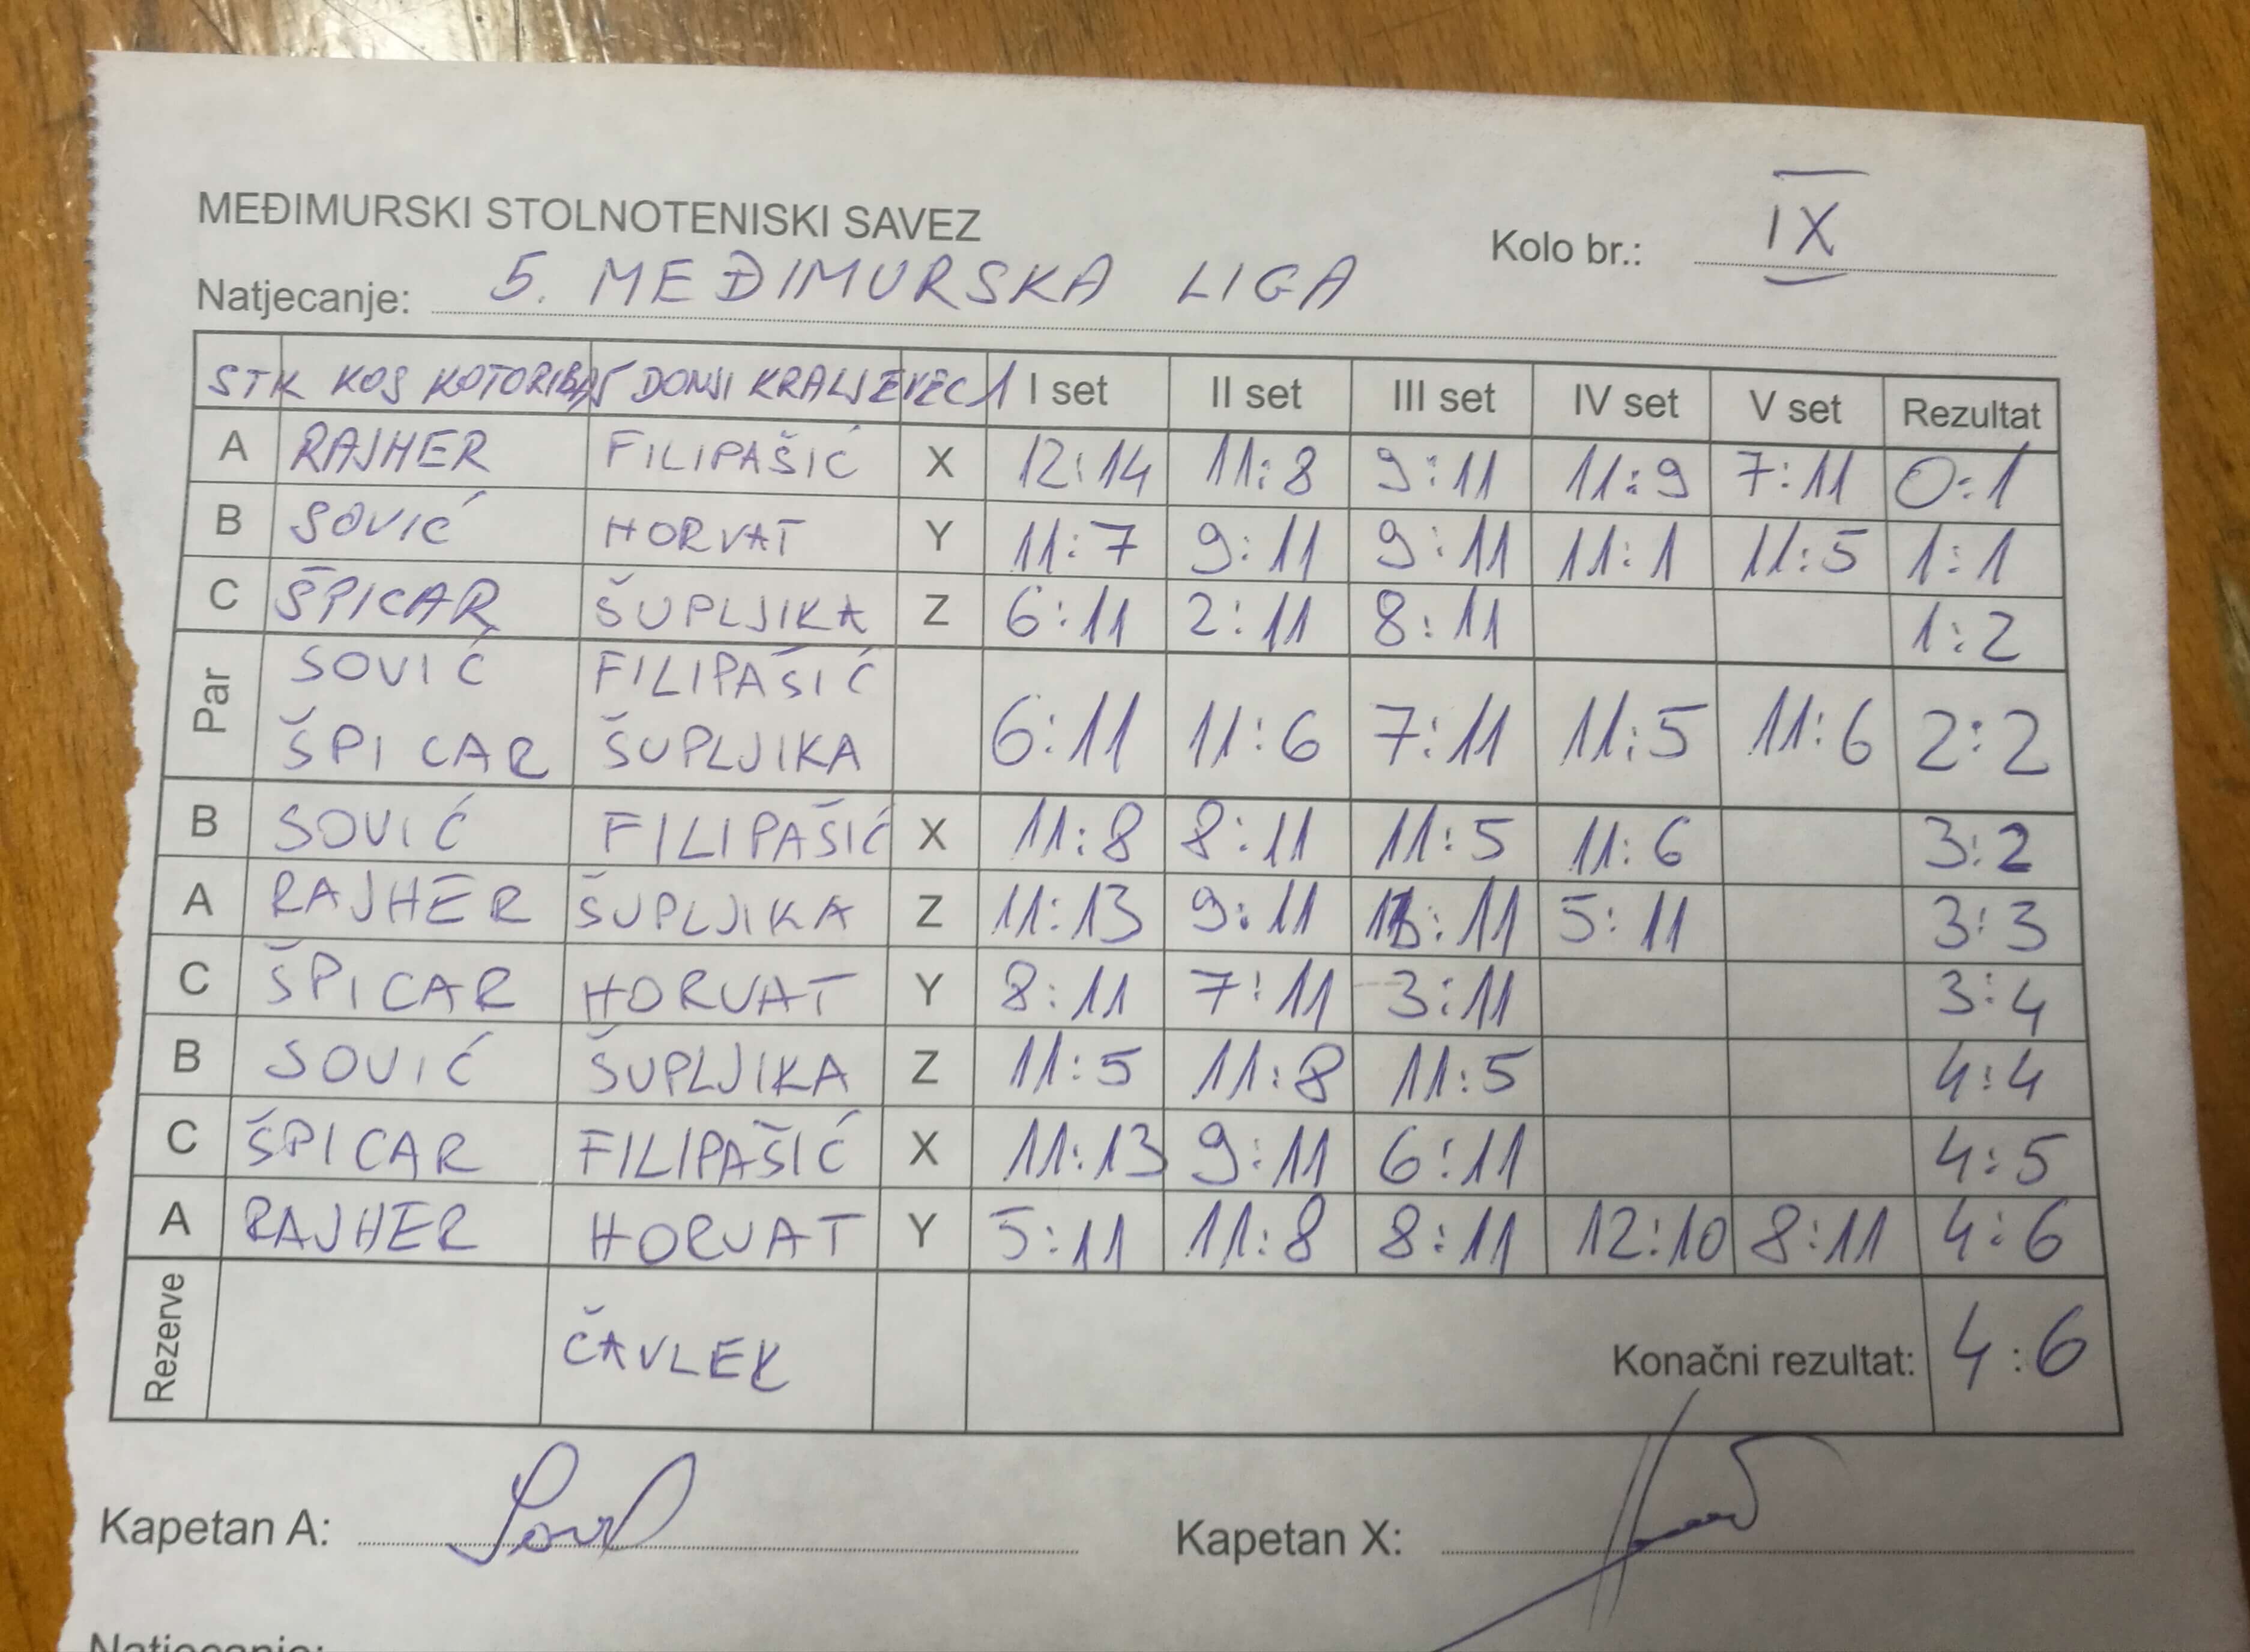 MEĐIMURSKI STOLNOTENISKI SAVEZ
Kolo br.: IX
Natjecanje: 5. MEĐIMURSKA LIGA
STK KOS KOTORIBA DONJI KRALJEVEC 1 I set II set III set IV set V set Rezultat
A RAJHER FILIPAŠIĆ X 12:14 11:8 9:11 11:9 7:11 0:1
B SOVIĆ HORVAT Y 11:7 9:11 9:11 11:1 11:5 1:1
C ŠPICAR ŠUPLJIKA Z 6:11 2:11 8:11 1:2
Par SOVIĆ FILIPAŠIĆ
ŠPICAR ŠUPLJIKA 6:11 11:6 7:11 11:5 11:6 2:2
B SOVIĆ FILIPAŠIĆ X 11:8 8:11 11:5 11:6 3:2
A RAJHER ŠUPLJIKA Z 11:13 9:11 13:11 5:11 3:3
C ŠPICAR HORVAT Y 8:11 7:11 3:11 3:4
B SOVIĆ ŠUPLJIKA Z 11:5 11:8 11:5 4:4
C ŠPICAR FILIPAŠIĆ X 11:13 9:11 6:11 4:5
A RAJHER HORVAT Y 5:11 11:8 8:11 12:10 8:11 4:6
Rezerve ČAVLEK Konačni rezultat: 4:6
Kapetan A: Kapetan X:
Natjecanje: